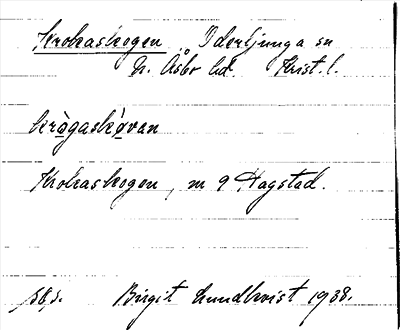 Krokaskogen Oderljunga sn
N. Åsbo hd Krist. l.
krògaskòvan
Krokaskogen, nr 9 Hagstad.
Birgit Lundkvist 1938.